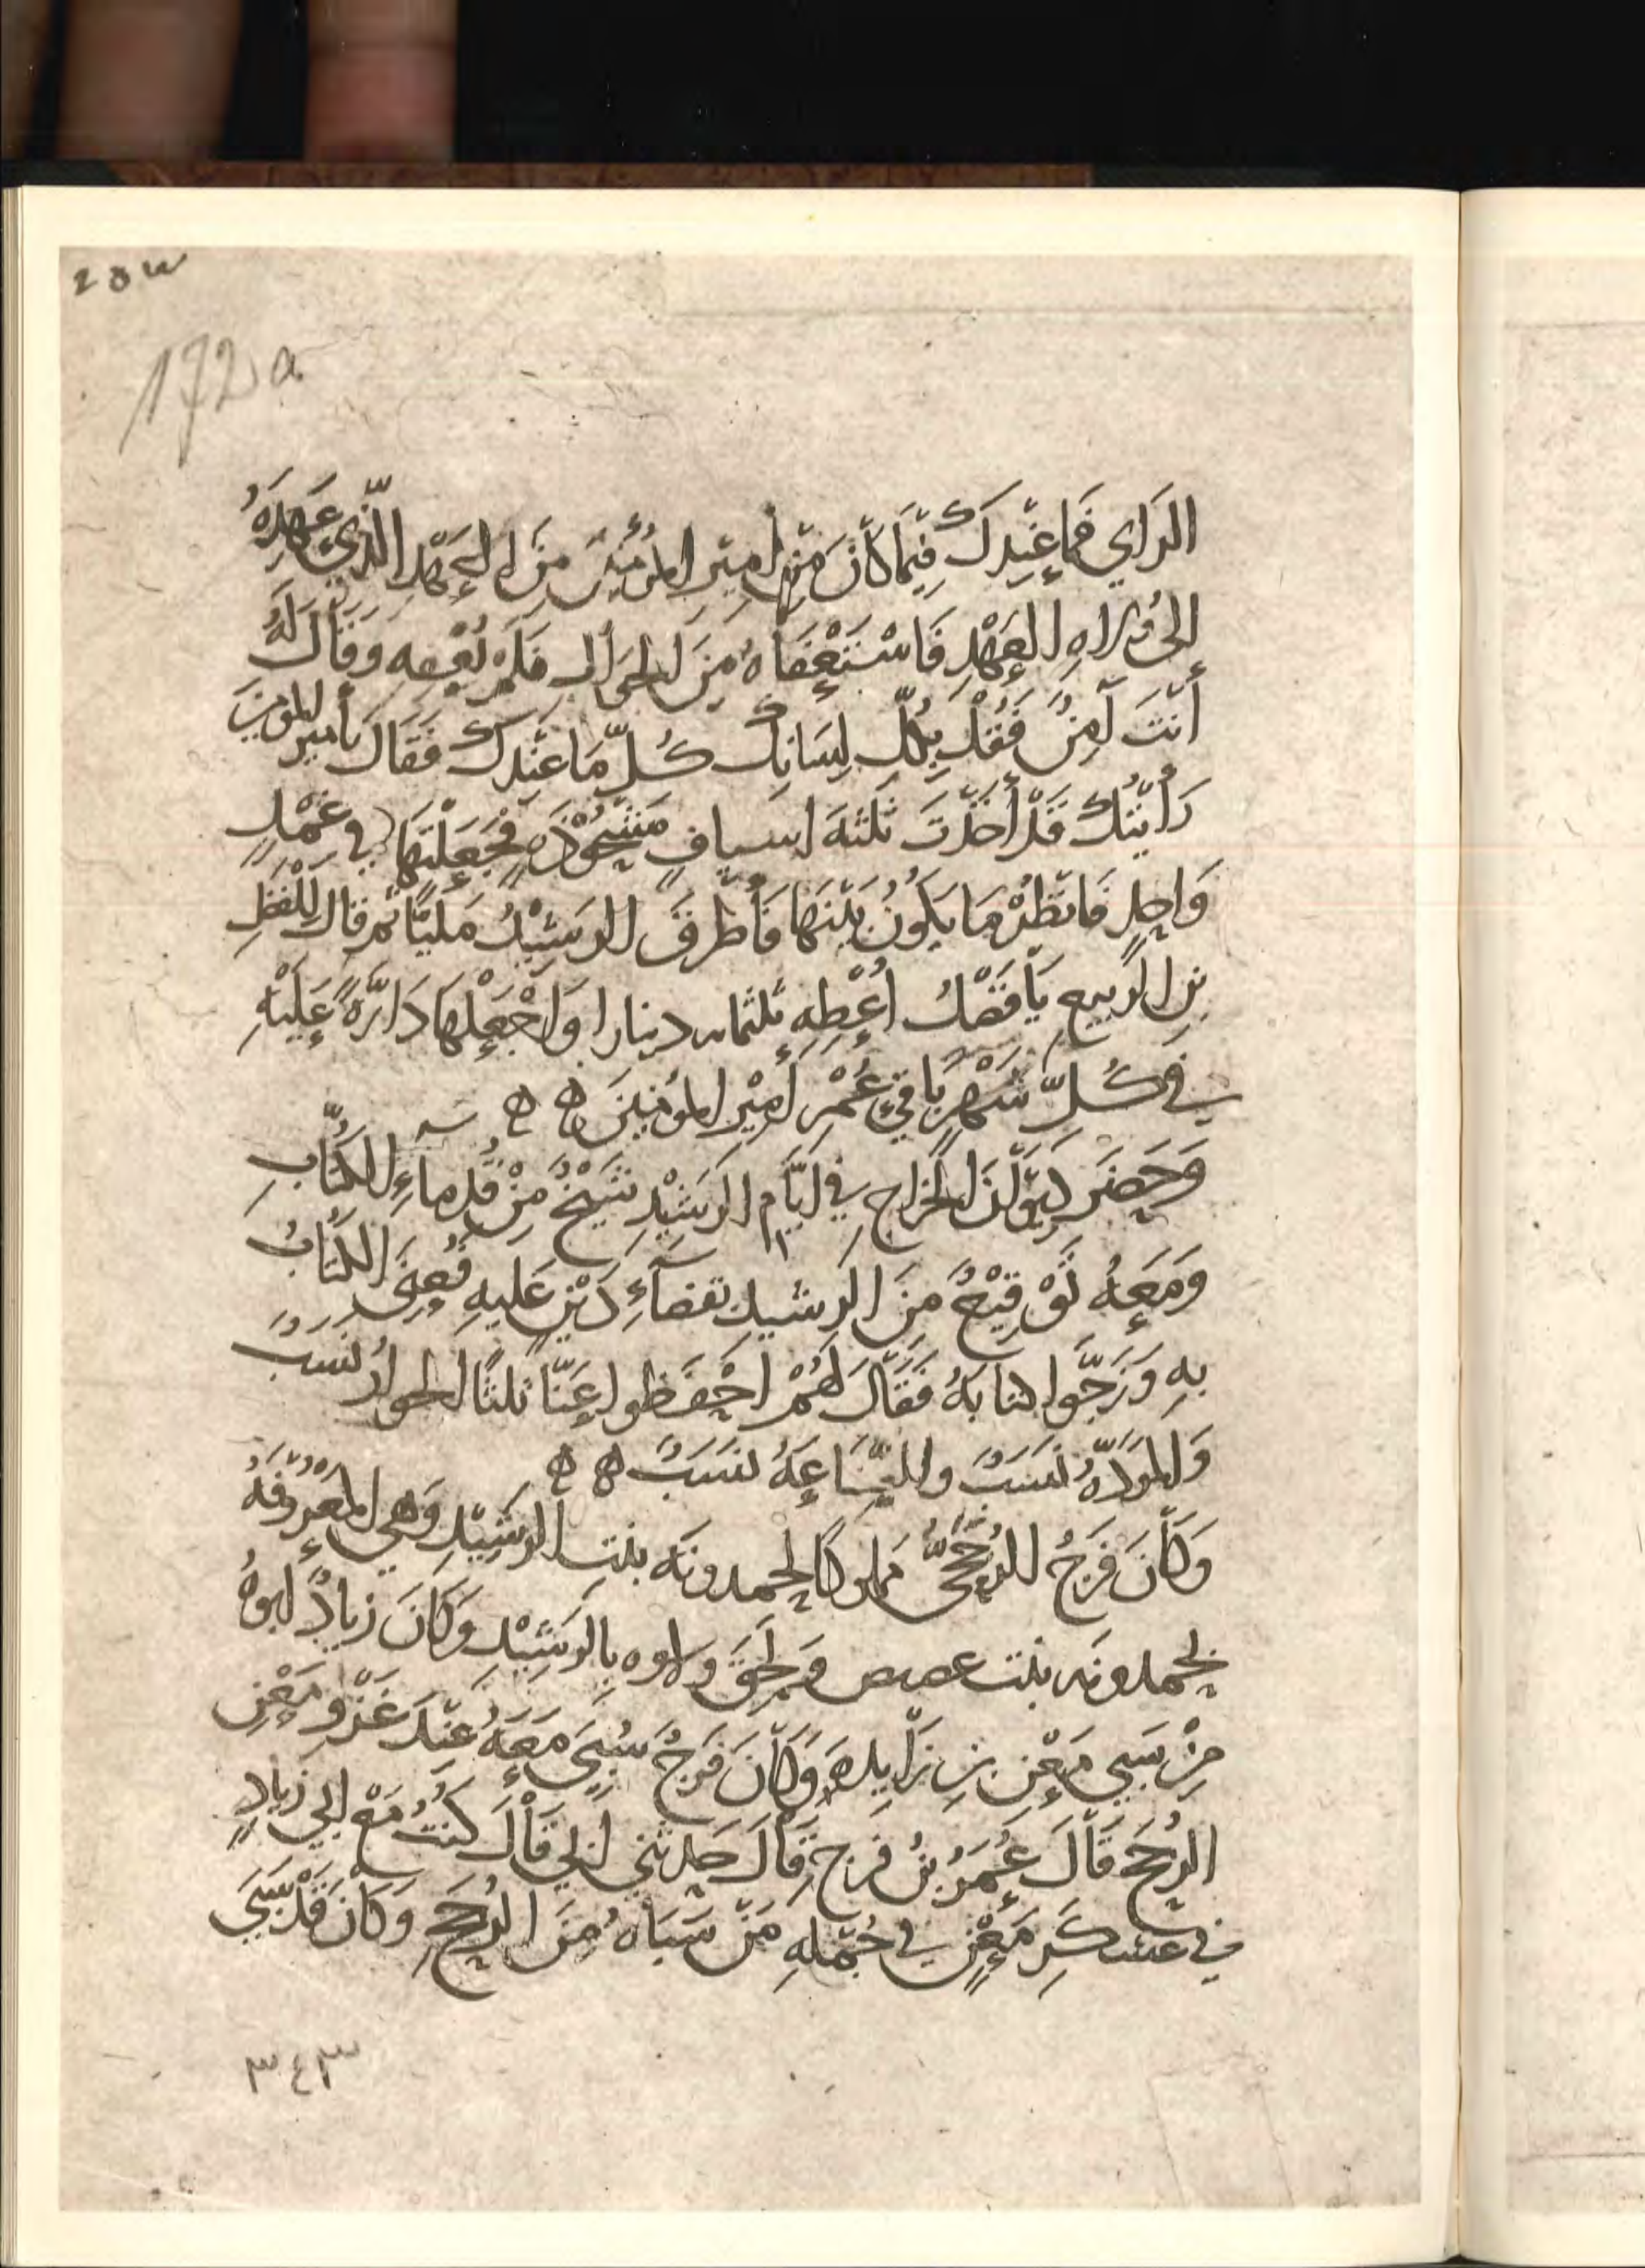 172a
الرَاي فَمَا عِنْدِكَ فِيْمَا كَانَ مِنْ أَمِيْرِ المُؤْمِنِيْنَ مِنَ العَهْدِ الَّذِي عَهِدَهُ
إلى وُلاهِ العَهْدِ فَاسْتَعْفَاهُ مِنَ الجَوَابِ فَلَمْ يُعْفِهِ وَقَالَ لَهُ
أَنْتَ آمِنٌ فَقُلْ بِكُلِّ لِسَانِكَ كُلَّ مَا عِنْدَكَ فَقَالَ يَأَمِيرَ المُومِنِينَ
رَأَيْتُكَ قَدْ أَخَذْتَ ثَلثَهَ اسيافٍ مَشْحُوْذَهٍ فَجَعَلْتَهَا فِي غِمْدٍ
وَاحِدٍ فَانْظُرْ مَا يَكُونُ بَيْنَهَا فَأَطْرَقَ الرَشِيْدُ مَلِيًّا ثُمَّ قالَ لِلْفَضْلِ
بنِ الرَبيعِ يَا فَضْلُ أَعْطِهِ ثلثمايه دينارا وَاجْعَلْهَا دَارَّهً عَلَيْهِ
فِي كُلِّ شَهْرٍ بَاقِيْ عُمْرِ أَمِيْرِ المُؤمِنِينَ ه ه
وَحَضَرَ دِيْوَانَ الخَرَاجِ فِي ايَّامِ الرَشِيْدِ شَيْخٌ مِنْ قُدَماءِ الكُتَّابِ
وَمَعَهُ تَوْقِيْعٌ مِنَ الرشيدِ بقضَآءِ دَيْنٍ عَلَيهِ فَعُنِيَ الكُتَّابُ
بِهِ وَزَجَّوا كتابَهُ فَقَالَ لَهُمْ احْفَظُوا عَنّا ثلثًا الجوارُ نسَبٌ
وَالمَوَدَّهُ نَسَبٌ والصِّنَاعَهُ نَسَبٌ ه ه
وَكَانَ فَرَجُ الرُخَّجِيُّ مَملوكًا لحمدونَه بنتِ الرَشِيْدِ وَهِي المَعْرُوفَهُ
بحمدونه بنت عضيض وَلَحِقَ ولاوه بالرَشِيْدِ وَكَانَ زيادٌ ابوهُ
مِنْ سَبي مَعْنِ بنِ زَايِدهَ وَكَانَ فَرَجٌ سُبِيَ مَعَهُ عِنْدَ غَزْوِ مَعْنٍ
الرُخَّج قَالَ عُمَرُ بنُ فَرجٍ قَالَ حَدثَني ابي قَالَ كُنْتُ مَعَ ابي زِيَادٍ
في عسكَرِ مَعْنٍ فِي جُمْلهِ مَنْ سَبَاهُ مِنَ الرُخَّجِ وَكَانَ قَدْ سَبَى
٣٤٣